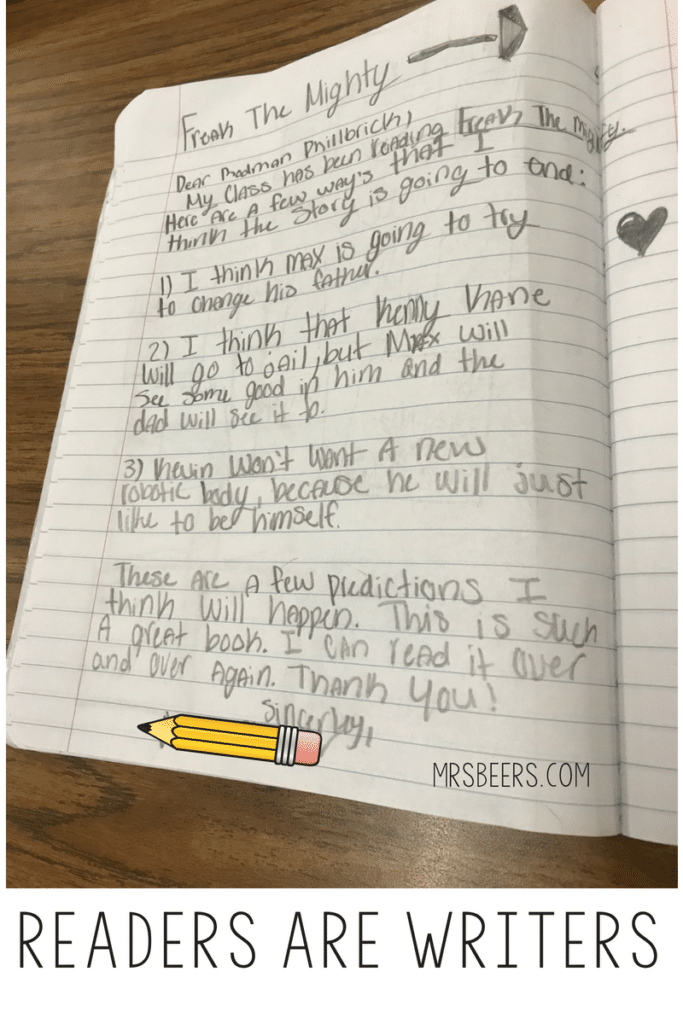 Freak The Mighty
Dear Rodman Phillbrick,
My Class has been reading Freak The Mighty.
Here Are A few way's that I
think the Story is going to end:
1) I think max is going to try
to change his father.
2) I think that kenny kane
will go to jail, but Max will
see some good in him and the
dad will see it to.
3) kevin Won't Want A new
robotic body, because he will just
like to be himself.
These Are A few predictions I
think will happen. This is such
A great book. I can read it over
and over Again. Thank you!
Sincerley,
MRSBEERS.COM
READERS ARE WRITERS